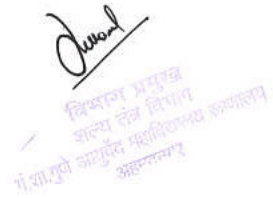 विभाग प्रमुख
शल्य तंत्र विभाग
गं.शा.गुणे आयुर्वेद महाविद्यालय रुग्णालय
अहमदनगर